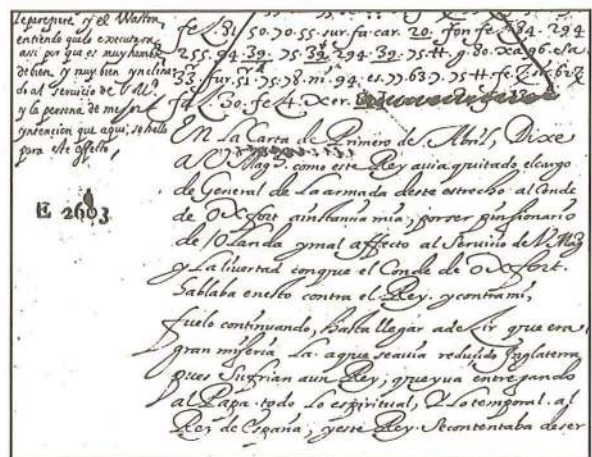 le parepiere y el Waston
entiendo que lo executara
assi por que es muy hombre
de bien y muy bien ynclina
do al servicio de V M.
y la persona de mejor
yntencion que aqui se halla
para este effeto,
E 2603
fe L. 31 50.70.55. sur. fa. car. 20. fon fe 134. 294
255. 94. 39. 75. 39. 294. 39. 75.
33. fur. 51. 75. 78. ni. 94. es. 77. 63. 75.
fa L. 30. fe 4. Xer.
En la Carta de Primero de Abril, Dixe
a V Magd. como este Rey avia quitado el cargo
de General de la armada deste estrecho al Conde
de OXfort a instancia mia, por ser pinsionario
de Olanda y mal affecto al Servicio de V Magd
y La livertad conque el Conde de OXfort.
hablaba en esto contra el Rey. y contra mi,
fuelo continuando, hasta llegar a deZir que era
gran miseria La. a que se avia reduzido Inglaterra
pues Sufrian a un Rey, que yva entregando
al Papa. todo Lo espiritual, Y Lo temporal. al
Rey de España, y este Rey. Se contentaba de ser